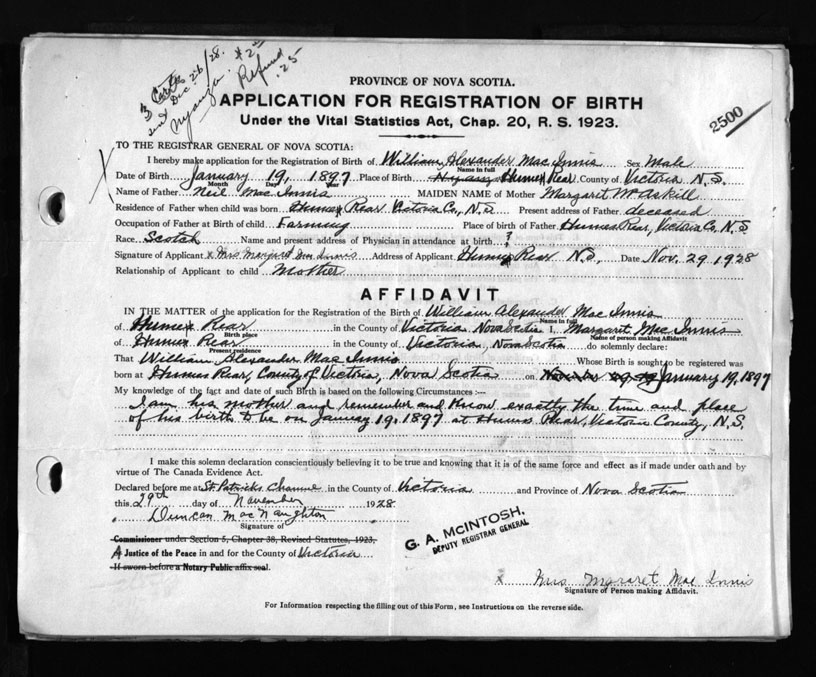 3 Certs
sent Dec. 26/28. $2.00
Nyanza. Refund
.25
PROVINCE OF NOVA SCOTIA.
APPLICATION FOR REGISTRATION OF BIRTH
Under the Vital Statistics Act, Chap. 20, R. S. 1923.
2500
TO THE REGISTRAR GENERAL OF NOVA SCOTIA:
I hereby make application for the Registration of Birth of William Alexander Mac Innis Sex Male
Name in full
Date of Birth January 19, 1897 Place of Birth Nyanza Humes Rear County of Victoria N.S.
Month Day Year
Name of Father Neil Mac Innis MAIDEN NAME of Mother Margaret McAskill
Residence of Father when child was born Humes Rear Victoria Co., N.S Present address of Father deceased
Occupation of Father at Birth of child Farming Place of birth of Father Humes Rear, Victoria Co, N.S.
Race Scotch Name and present address of Physician in attendance at birth ?
Signature of Applicant x Mrs Margaret Mac Innis Address of Applicant Humes Rear N.S. Date Nov. 29. 1928
Relationship of Applicant to child Mother
AFFIDAVIT
IN THE MATTER of the application for the Registration of Birth of William Alexander Mac Innis
Name in full
of Humes Rear in the County of Victoria Nova Scotia I, Margaret Mac Innis
Birth place Name of person making Affidavit
of Humes Rear in the County of Victoria, Nova Scotia do solemnly declare:
Present residence
That William Alexander Mac Innis Whose Birth is sought to be registered was
born at Humes Rear, County of Victoria, Nova Scotia on January 19, 1897
My knowledge of the fact and date of such Birth is based on the following Circumstances :—
I am his mother and remember and know exactly the time and place
of his birth to be on January 19, 1897 at Humes Rear, Victoria County, N.S.
I make this solemn declaration conscientiously believing it to be true and knowing that it is of the same force and effect as if made under oath and by
virtue of The Canada Evidence Act.
Declared before me at St. Patricks Channel in the County of Victoria and Province of Nova Scotia
this 29th day of November 1928
Duncan MacNaughton
Signature of
Commissioner under Section 5, Chapter 38, Revised Statutes, 1923,
A Justice of the Peace in and for the County of Victoria
If sworn before a Notary Public affix seal.
G. A. MCINTOSH,
DEPUTY REGISTRAR GENERAL
x Mrs Margaret Mac Innis
Signature of Person making Affidavit.
For Information respecting the filling out of this Form, see Instructions on the reverse side.